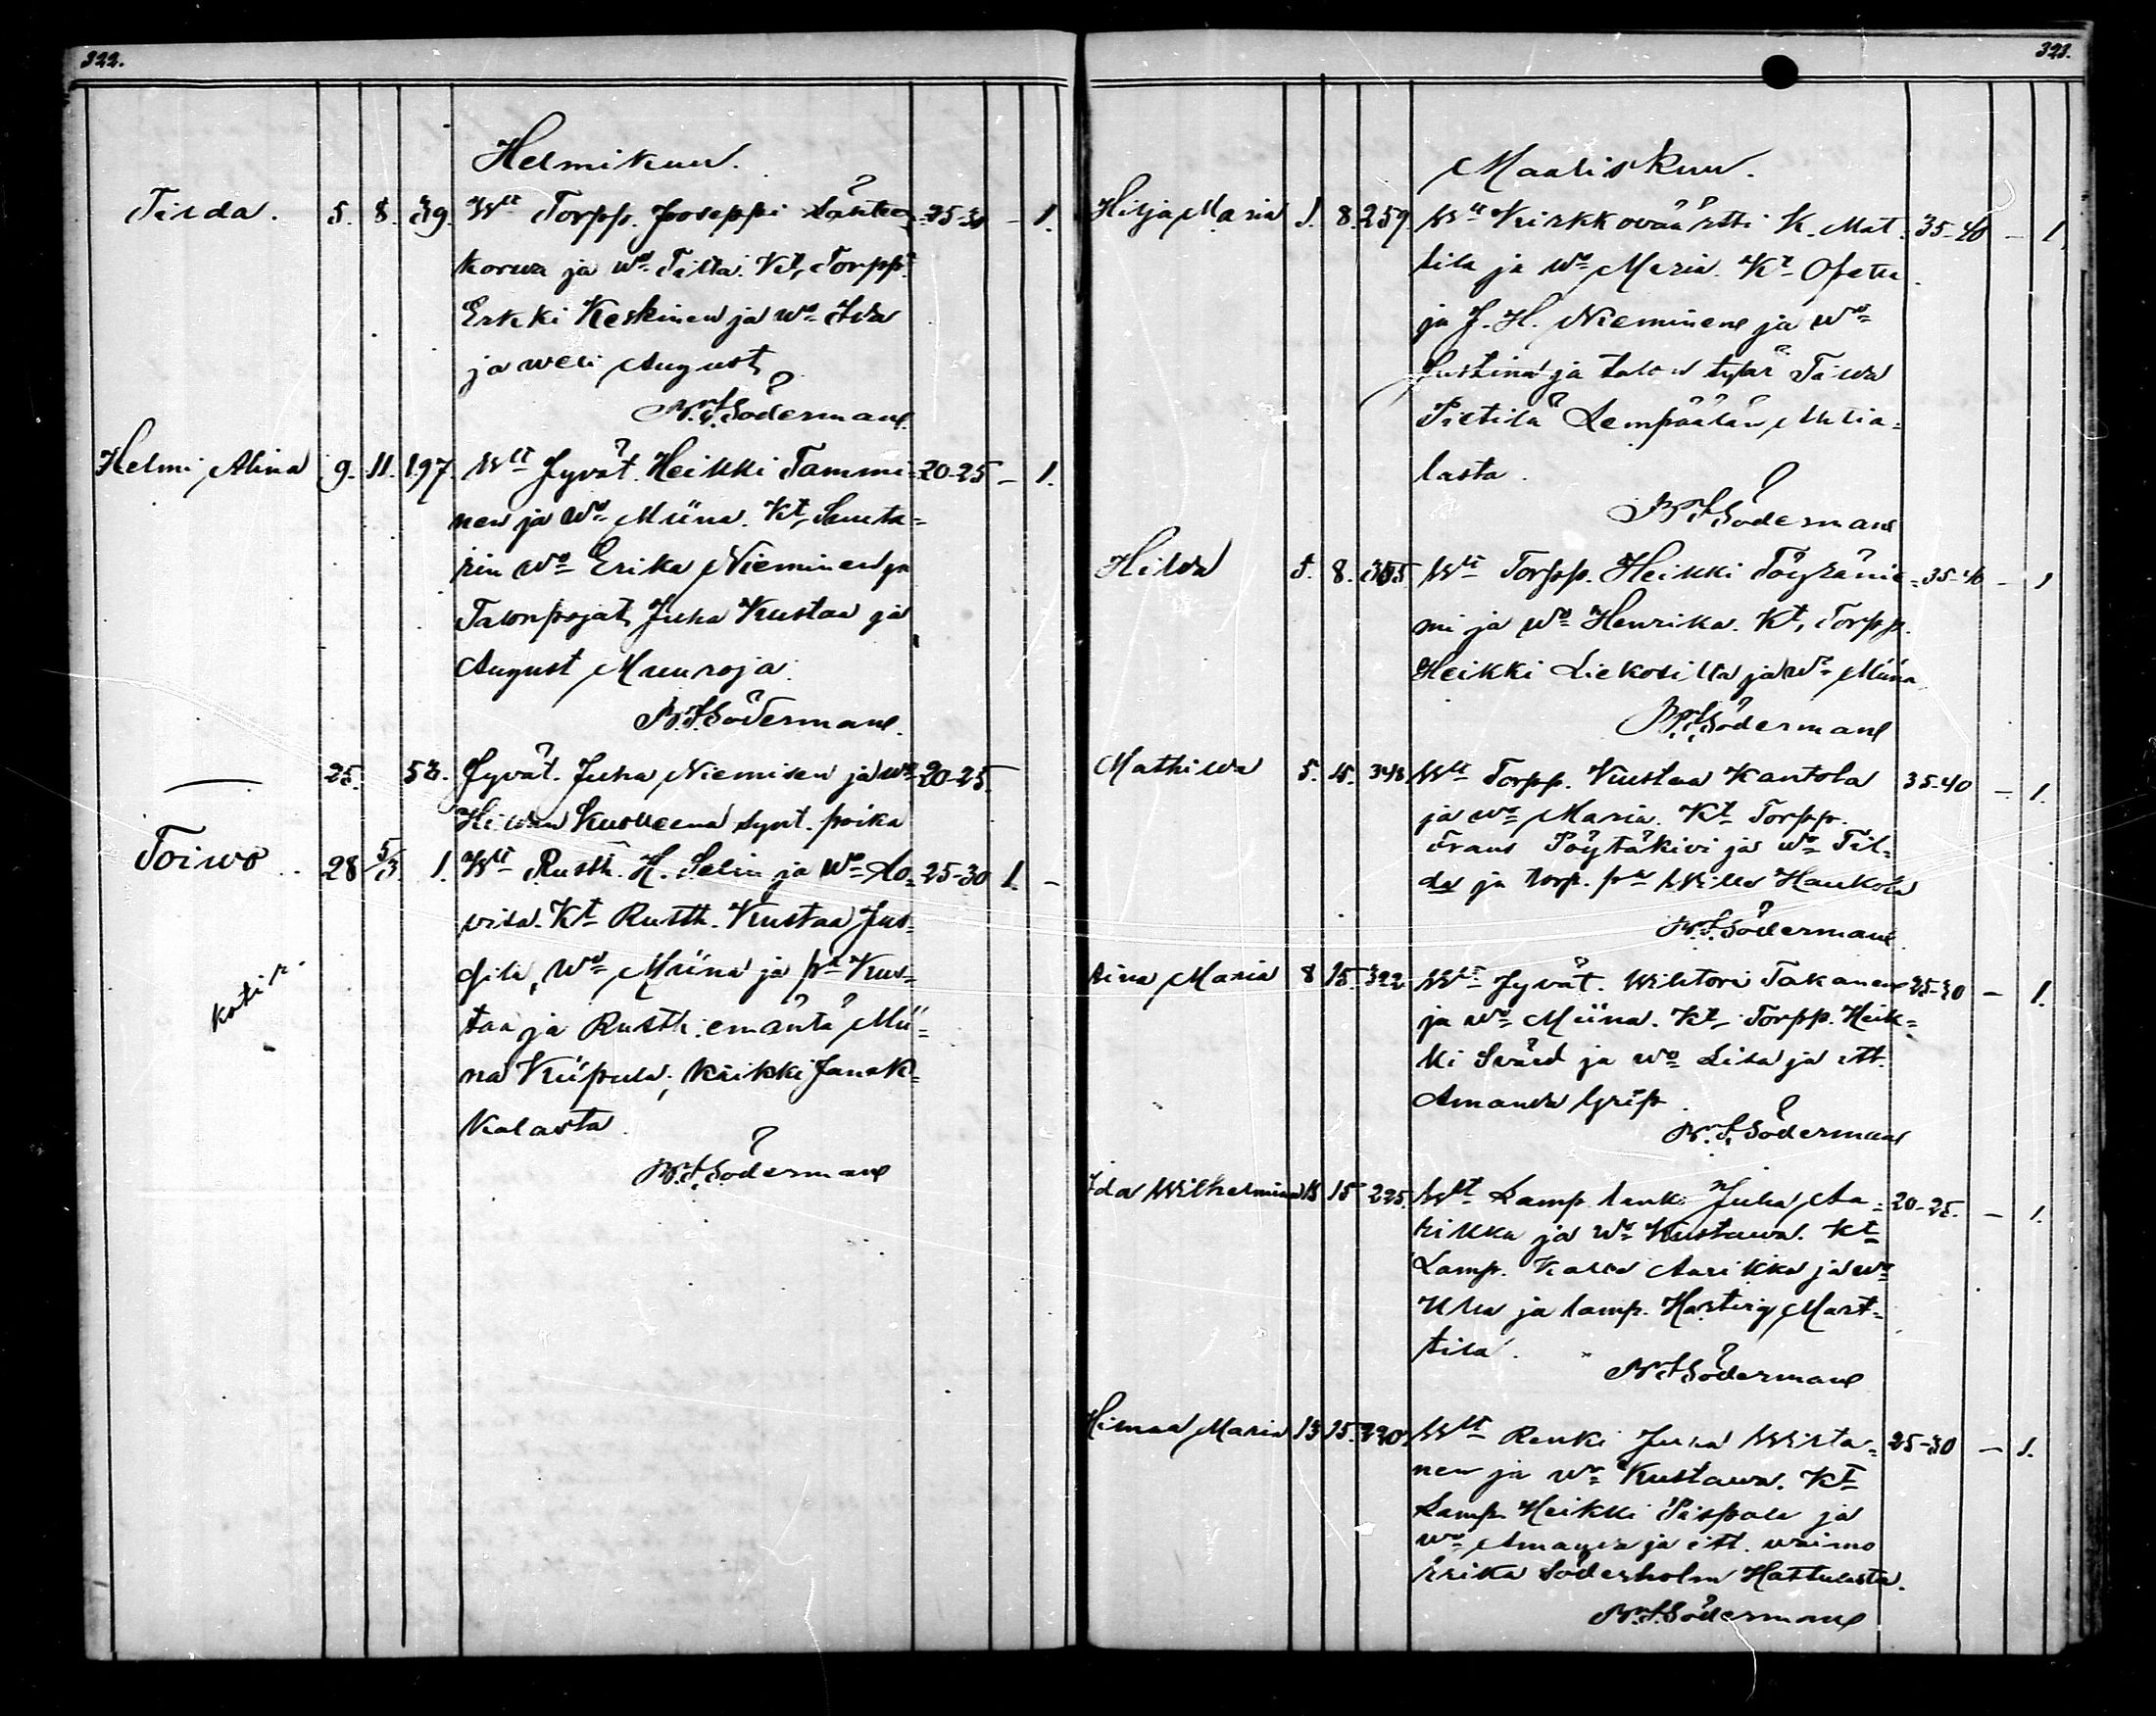 322.
Helmikuu.
Tilda. 5. 8. 39. Wt Torpp. Jooseppi Lähteen- 25-30 - 1.
korwa ja wo Tilta. Kt, Torpp.
Erkki Keskinen ja wo Ida
ja weli August
K. F. Södermane.
Helmi Alina 9. 11. 197. Wt Jyvät. Heikki Tammi- 20-25 - 1.
nen ja wo Miina. Kt,
rin wo Erika Nieminen ja
Talonpojat Juha Kustaa ja
August Muuroja.
K. F. Södermane.
— 25. 58. Jyvät. Juha Niemisen ja wo 20-25.
Hilman kuolleena synt. poika
Toiwo 28 5/3. 1. Wt Rusth. H. Selin ja wo Lo- 25-30 1. -
visa. Kt Rusth. Kustaa Jus-
sila, wo Miina ja pa Kus-
taa ja Rusth. emäntä Mii-
na Kiipula, kaikki Janak-
kalasta.
K. F. Södermane
koti r.
323.
Maaliskuu.
Hilja Maria 1. 8. 259. Wt Kirkkoväärtti K. Mat- 35-40 - 1.
tila ja wo Maria. Kt Opetta
ja J. H. Nieminen ja wo
Justina ja talon tytär Taiwa
Pietilä Lempäälän Mutia-
lasta.
K. F. Södermane
Hilda 5. 8. 305. Wt Torpp. Heikki Töyränie- 35-40 - 1
mi ja wo Henrika. Kt, Torpp.
Heikki Liekosilta ja wo Miina
K. F. Södermane
Mathilda 5. 15. 348. Wt Torpp. Kustaa Kantola 35-40 - 1.
ja wo Maria. Kt Torpp.
Frans Pöytäkivi ja wo Til-
da ja torp. pa Wille Haukola
K. F. Södermane
Aina Maria 8 15. 322 Wt Jyvät. Wihtori Takanen 25-30 - 1.
ja wo Miina. Kt, Torpp. Heik-
ki Svärd ja wo Lisa ja itt.
Amanda Grip.
K. F. Södermane
Ida Wilhelmina 15 15 225. Wt Lamp. lank. Juha Aa- 20-25. - 1.
rikka ja wo Kustawa. Kt
Lamp. Kalle Aarikka ja wo
Ulla ja lamp. Hartvig Mart-
tila.
K. F. Södermane
Hilma Maria 13 15. 220. Wt Renki Juha Wirta- 25-30 - 1.
nen ja wo Kustawa. Kt
Lamp. Heikki Pispala ja
wo Amanda ja itt. waimo
Erika Söderholm Hattulasta.
K. F. Södermane